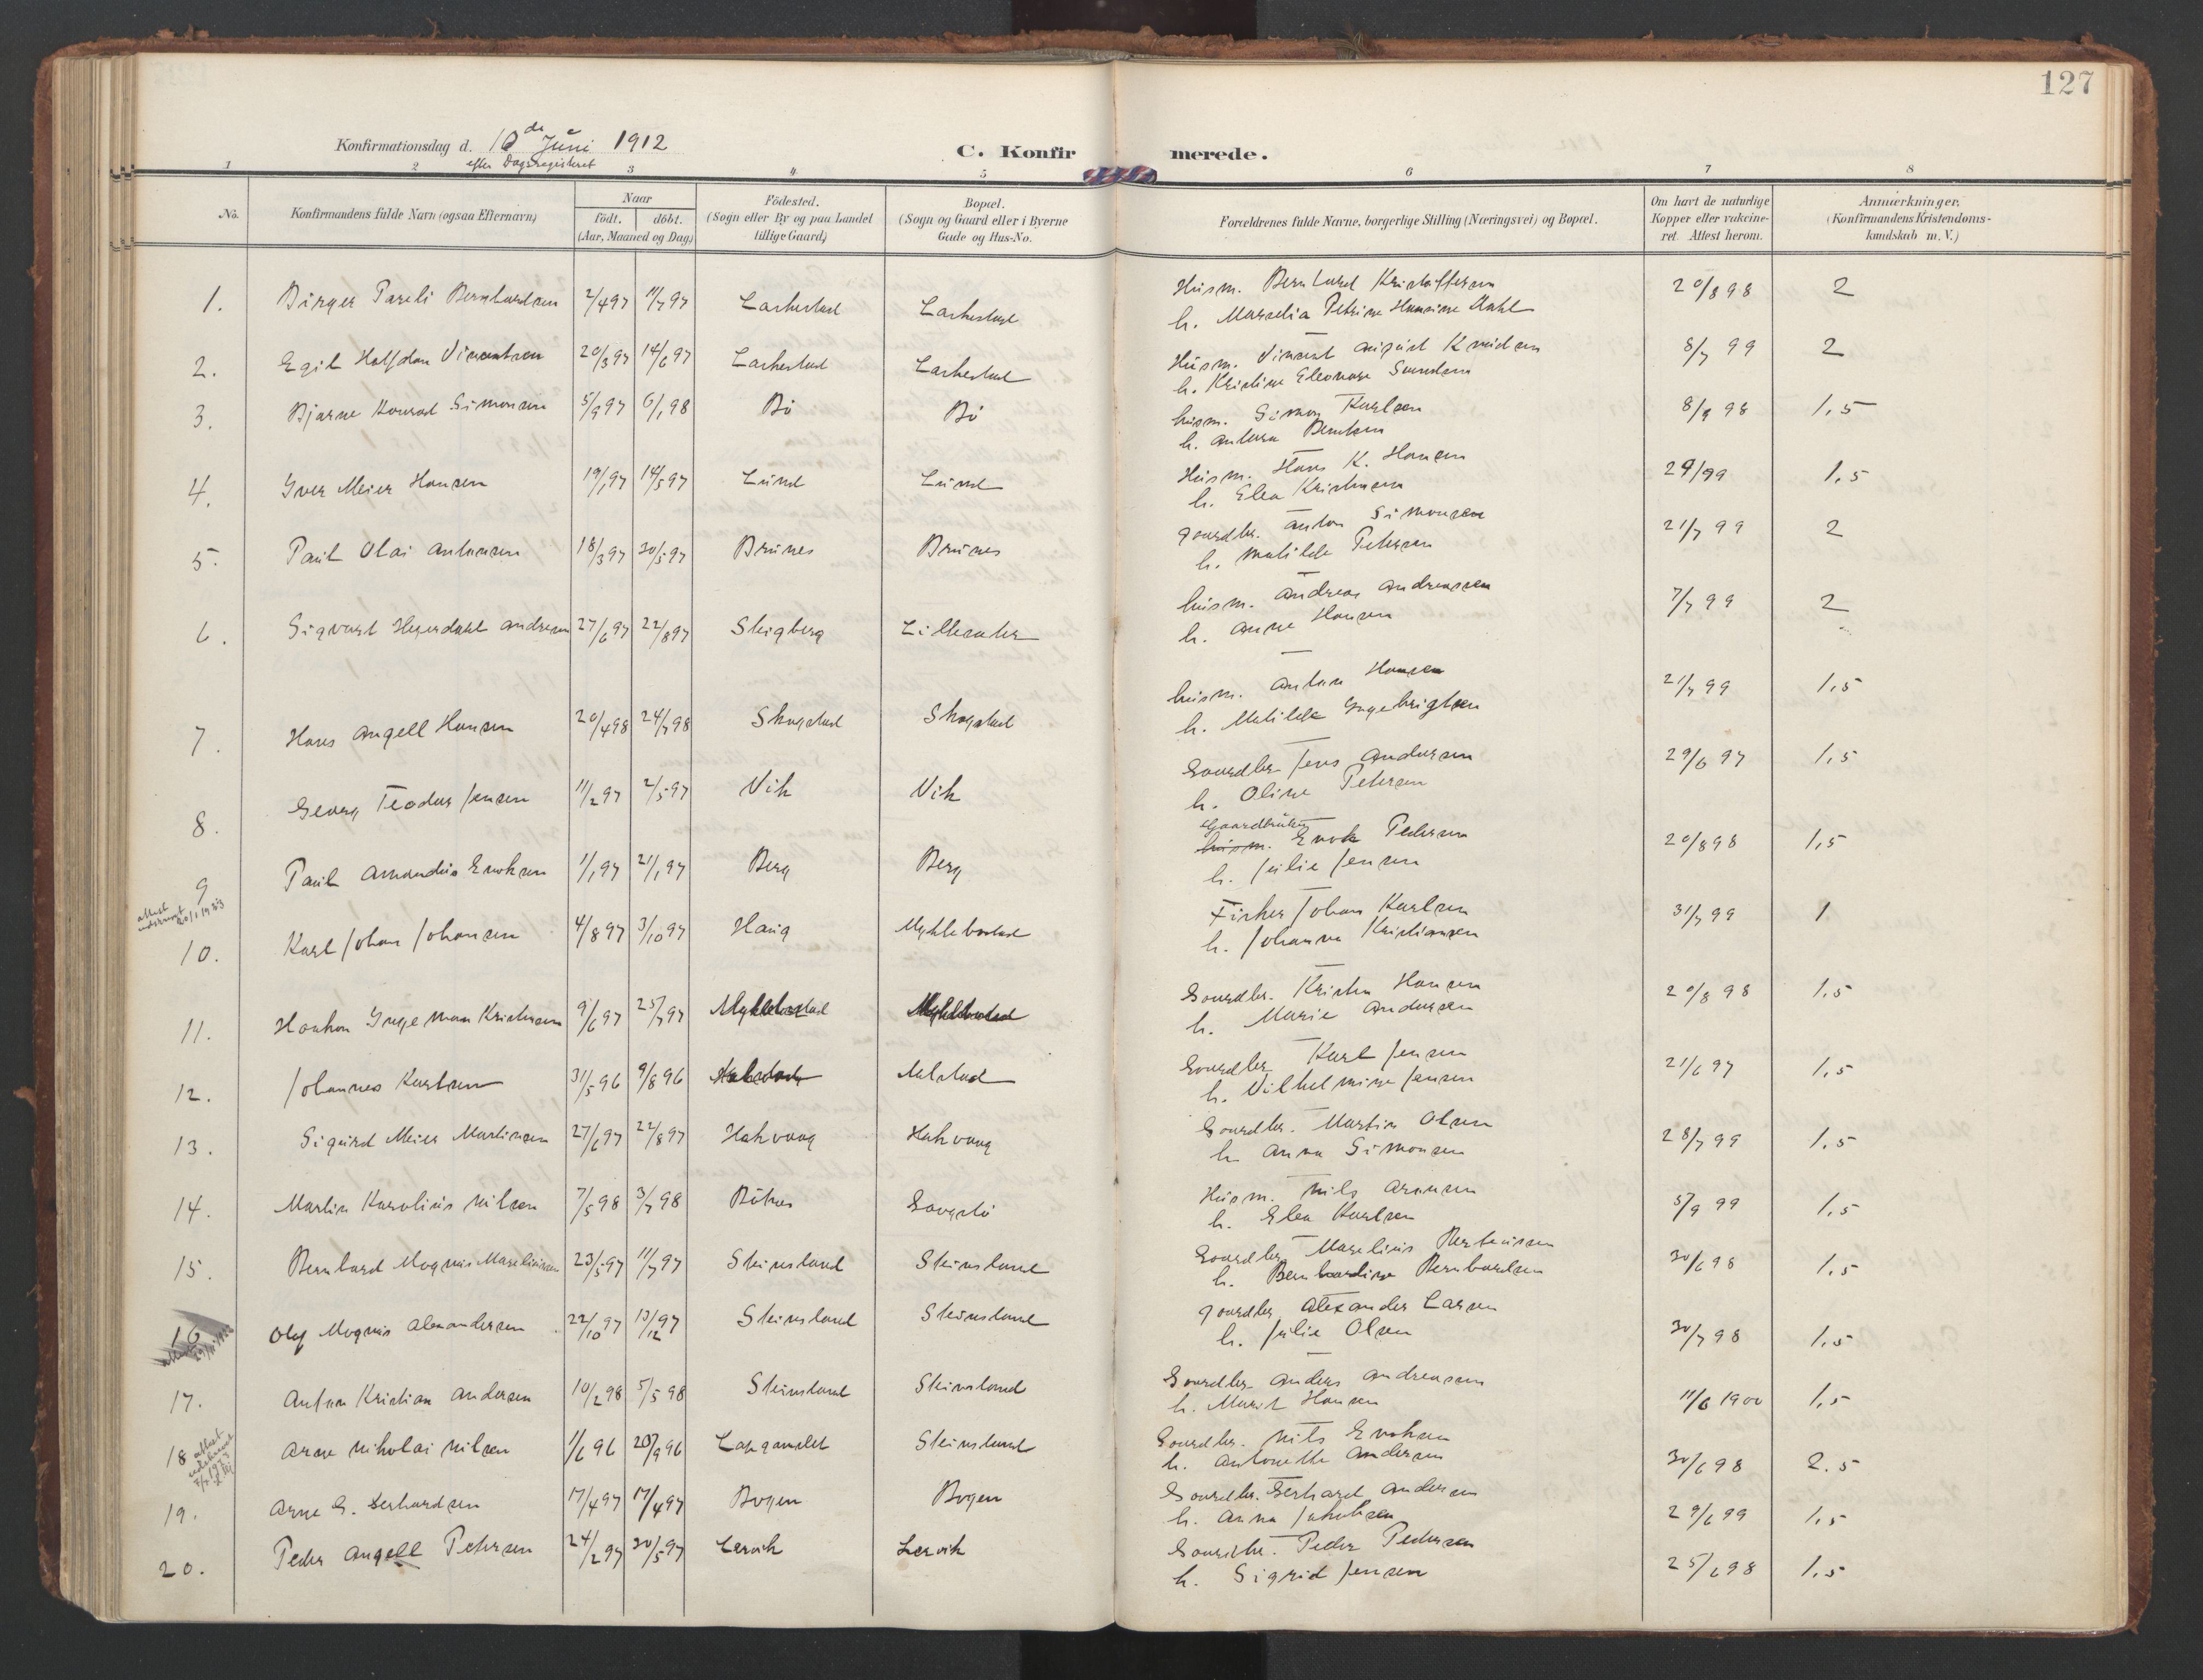 127
Konfirmationsdag d. 10de Juni 1912
efter Dagsregisteret
C. Konfirmerede.
1 2 3 4 5 6 7 8
No.
Konfirmandens fulde Navn (ogsaa Efternavn)
Naar
födt. döbt.
(Aar, Maaned og Dag)
Födested.
(Sogn eller By og paa Landet
tillige Gaard)
Bopæl.
(Sogn og Gaard eller i Byerne
Gade og Hus-No.
Forældrenes fulde Navne, borgerlige Stilling (Næringsvei) og Bopæl.
Om havt de naturlige
Kopper eller vakcine-
ret. Attest herom.
Anmærkninger.
(Konfirmandens Kristendoms-
kundskab m. V.)
1. Birger Pareli Bernhardsen 2/4 97 11/7 97 Laskestad Laskestad Husm. Bernhard Kristoffersen 20/8 98 2
h. Marselia Petrine Hansine Dahl
2. Egil Halfdan Vincentsen 20/3 97 14/6 97 Laskestad Laskestad Husm. Vincent August Knudsen 8/7 99 2
h. Kristine Eleonore
3. Bjarne Konrad Simonsen 5/9 97 6/1 98 Bö Bö husm. Simon Karlsen 8/9 98 1,5
h. Antora Berntsen
4. Iver Meier Hansen 19/1 97 14/5 97 Lund Lund Husm. Hans K. Hansen 29/99 1,5
h. Elea Kristensen
5. Paul Olai Antonsen 18/3 97 30/5 97 Brunes Brunes gaardbr. Anton Simonsen 21/7 99 2
h. Matilde Petersen
6. Sigvart Hegerdahl Andreasen 27/6 97 22/8 97 Steigberg husm. Andreas Andreassen 7/7 99 2
h. Anne Hansen
7. Hans Angell Hansen 20/4 98 24/7 98 Skogstad Skogstad husm. Antan Hansen 21/7 99 1,5
h. Matilde Ingebrigtsen
8. Georg Teodor Jensen 11/2 97 2/5 97 Vik Vik Gaardbr Jens Andersen 29/6 97 1,5
h. Oline Petersen
9 Paul Amandus Enoksen 1/1 97 21/1 97 Berg Berg Gaardbruker husm. Enok Pedersen 20/8 98 1,5
h. Julie Jensen
attest
udskrevet 20/1 1933
10. Karl Johan Johansen 4/8 97 3/10 97 Haug Myklebostad Fisker Johan Karlsen 31/7 99 1
h. Johanna Kristiansen
11. Haakon Ingeman Kristensen 9/6 97 25/7 97 Myklebostad Myklebostad Gaardbr. Kristen Hansen 20/8 98 1,5
h. Marie Andersen
12. Johannes Karlsen 31/5 96 9/8 96 Malstad Gaardbr Karl Jensen 21/6 97 1,5
h. Vilhelmine Jensen
13. Sigurd Meier Martinsen 27/6 97 22/8 97 Hakvaag Hakvaag Gaardbr. Martin Olsen 28/7 99 1,5
h Anna Simonsen
14. Martin Karolius Nilsen 7/5 98 3/7 98 Bötnes Husm. Nils Aronsen 5/9 99 1,5
h. Elea Karlsen
15. Bernhard Magnus Mareliussen 23/5 97 11/7 97 Steinsland Steinsland Gaardbr Marelius Berteussen 30/6 98 1,5
h. Bernhardine Bernhardsen
16 Olaf Magnus Alexandersen 22/10 97 13/12 97 Steinsland Steinsland gaardbr Alexander Larsen 30/7 98 1,5
h. Julie Olsen
17. Antan Kristian Andersen 10/2 98 5/5 98 Steinsland Steinsland Gaardbr. Anders Andreasen 11/6 1900 1,5
h. Marit Hansen
18 Arne Nikolai Nilsen 1/6 96 20/9 96 Steinsland Gaardbr. Nils Enoksen 30/6 98 2.5
h. Antonette Andersen
attest
udskrevet
19. Arne G. Gerhardsen 17/4 97 17/4 97 Bogen Bogen Gaardbr. Gerhard Andersen 29/6 99 1,5
h. Anna Jakobsen
20. Peder Angell Petersen 24/2 97 30/5 97 Lervik Lervik Gaardbr. Peder Pedersen 25/6 98 1,5
h. Sigrid Jensen